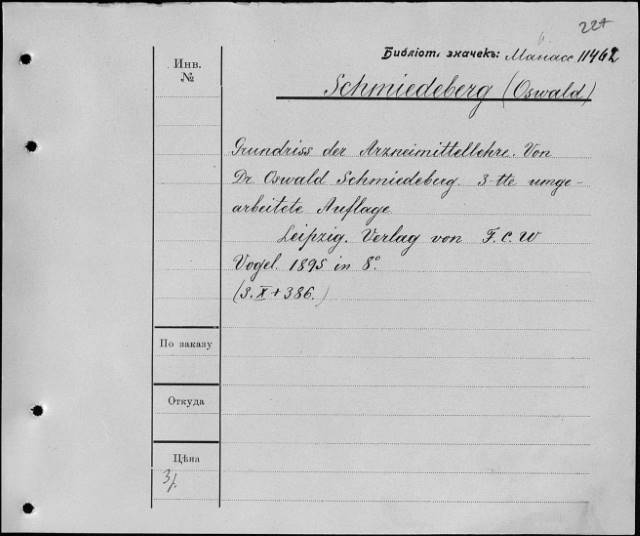 224
Библіот. значекъ: Манасс 11462
Инв.
№
Schmiedeberg (Oswald)
Grundriss der Arzneimittellehre. Von
Dr. Oswald Schmiedeberg. 3-tte umge-
arbeitete Auflage
Leipzig. Verlag von F. C. W
Vogel. 1895 in 8°.
(S. X + 386.)
По заказу
Откуда
Цѣна
3/.